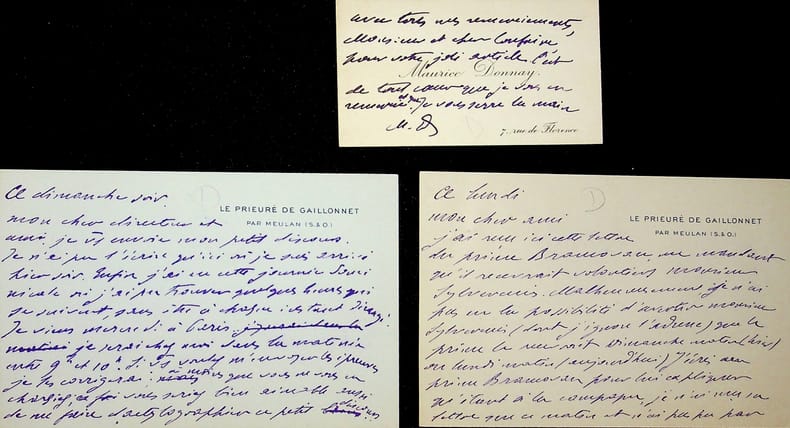 avec tous mes remerciements,
Monsieur et cher Confrère,
pour votre joli article. C'est
Maurice Donnay.
de tout cœur que je vous en
remercie et que je vous serre la main
M. D
7, rue de Florence
Ce dimanche soir
LE PRIEURÉ DE GAILLONNET
PAR MEULAN (S.&O.)
mon cher directeur et
ami, je vs envoie mon petit discours.
Je n'ai pu l'écrire qu'ici où je suis arrivé
hier soir. Enfin j'ai eu cette journée
où j'ai pu trouver quelques heures qui
se suivent sans être à chaque instant dérangé.
Je viens mercredi à Paris
je serai chez moi dans la matinée
entre 9h et 10h. Si vs voulez m'envoyer les épreuves
je les corrigerai à moins que vous ne vous en
chargiez. fois vous seriez bien aimable aussi
de me faire dactylographier ce petit discours.
Ce lundi
LE PRIEURÉ DE GAILLONNET
PAR MEULAN (S.&O.)
mon cher ami
j'ai reçu ici cette lettre
du prince me mandant
qu'il recevrait volontiers monsieur
Malheureusement je n'ai
pas eu la possibilité d'avertir monsieur
(dont j'ignore l'adresse) que le
prince le recevrait dimanche matin (hier)
ou lundi matin (aujourd'hui) J'écris au
prince pour lui expliquer
qu'étant à la campagne, je n'ai eu sa
lettre que ce matin et n'ai pu par